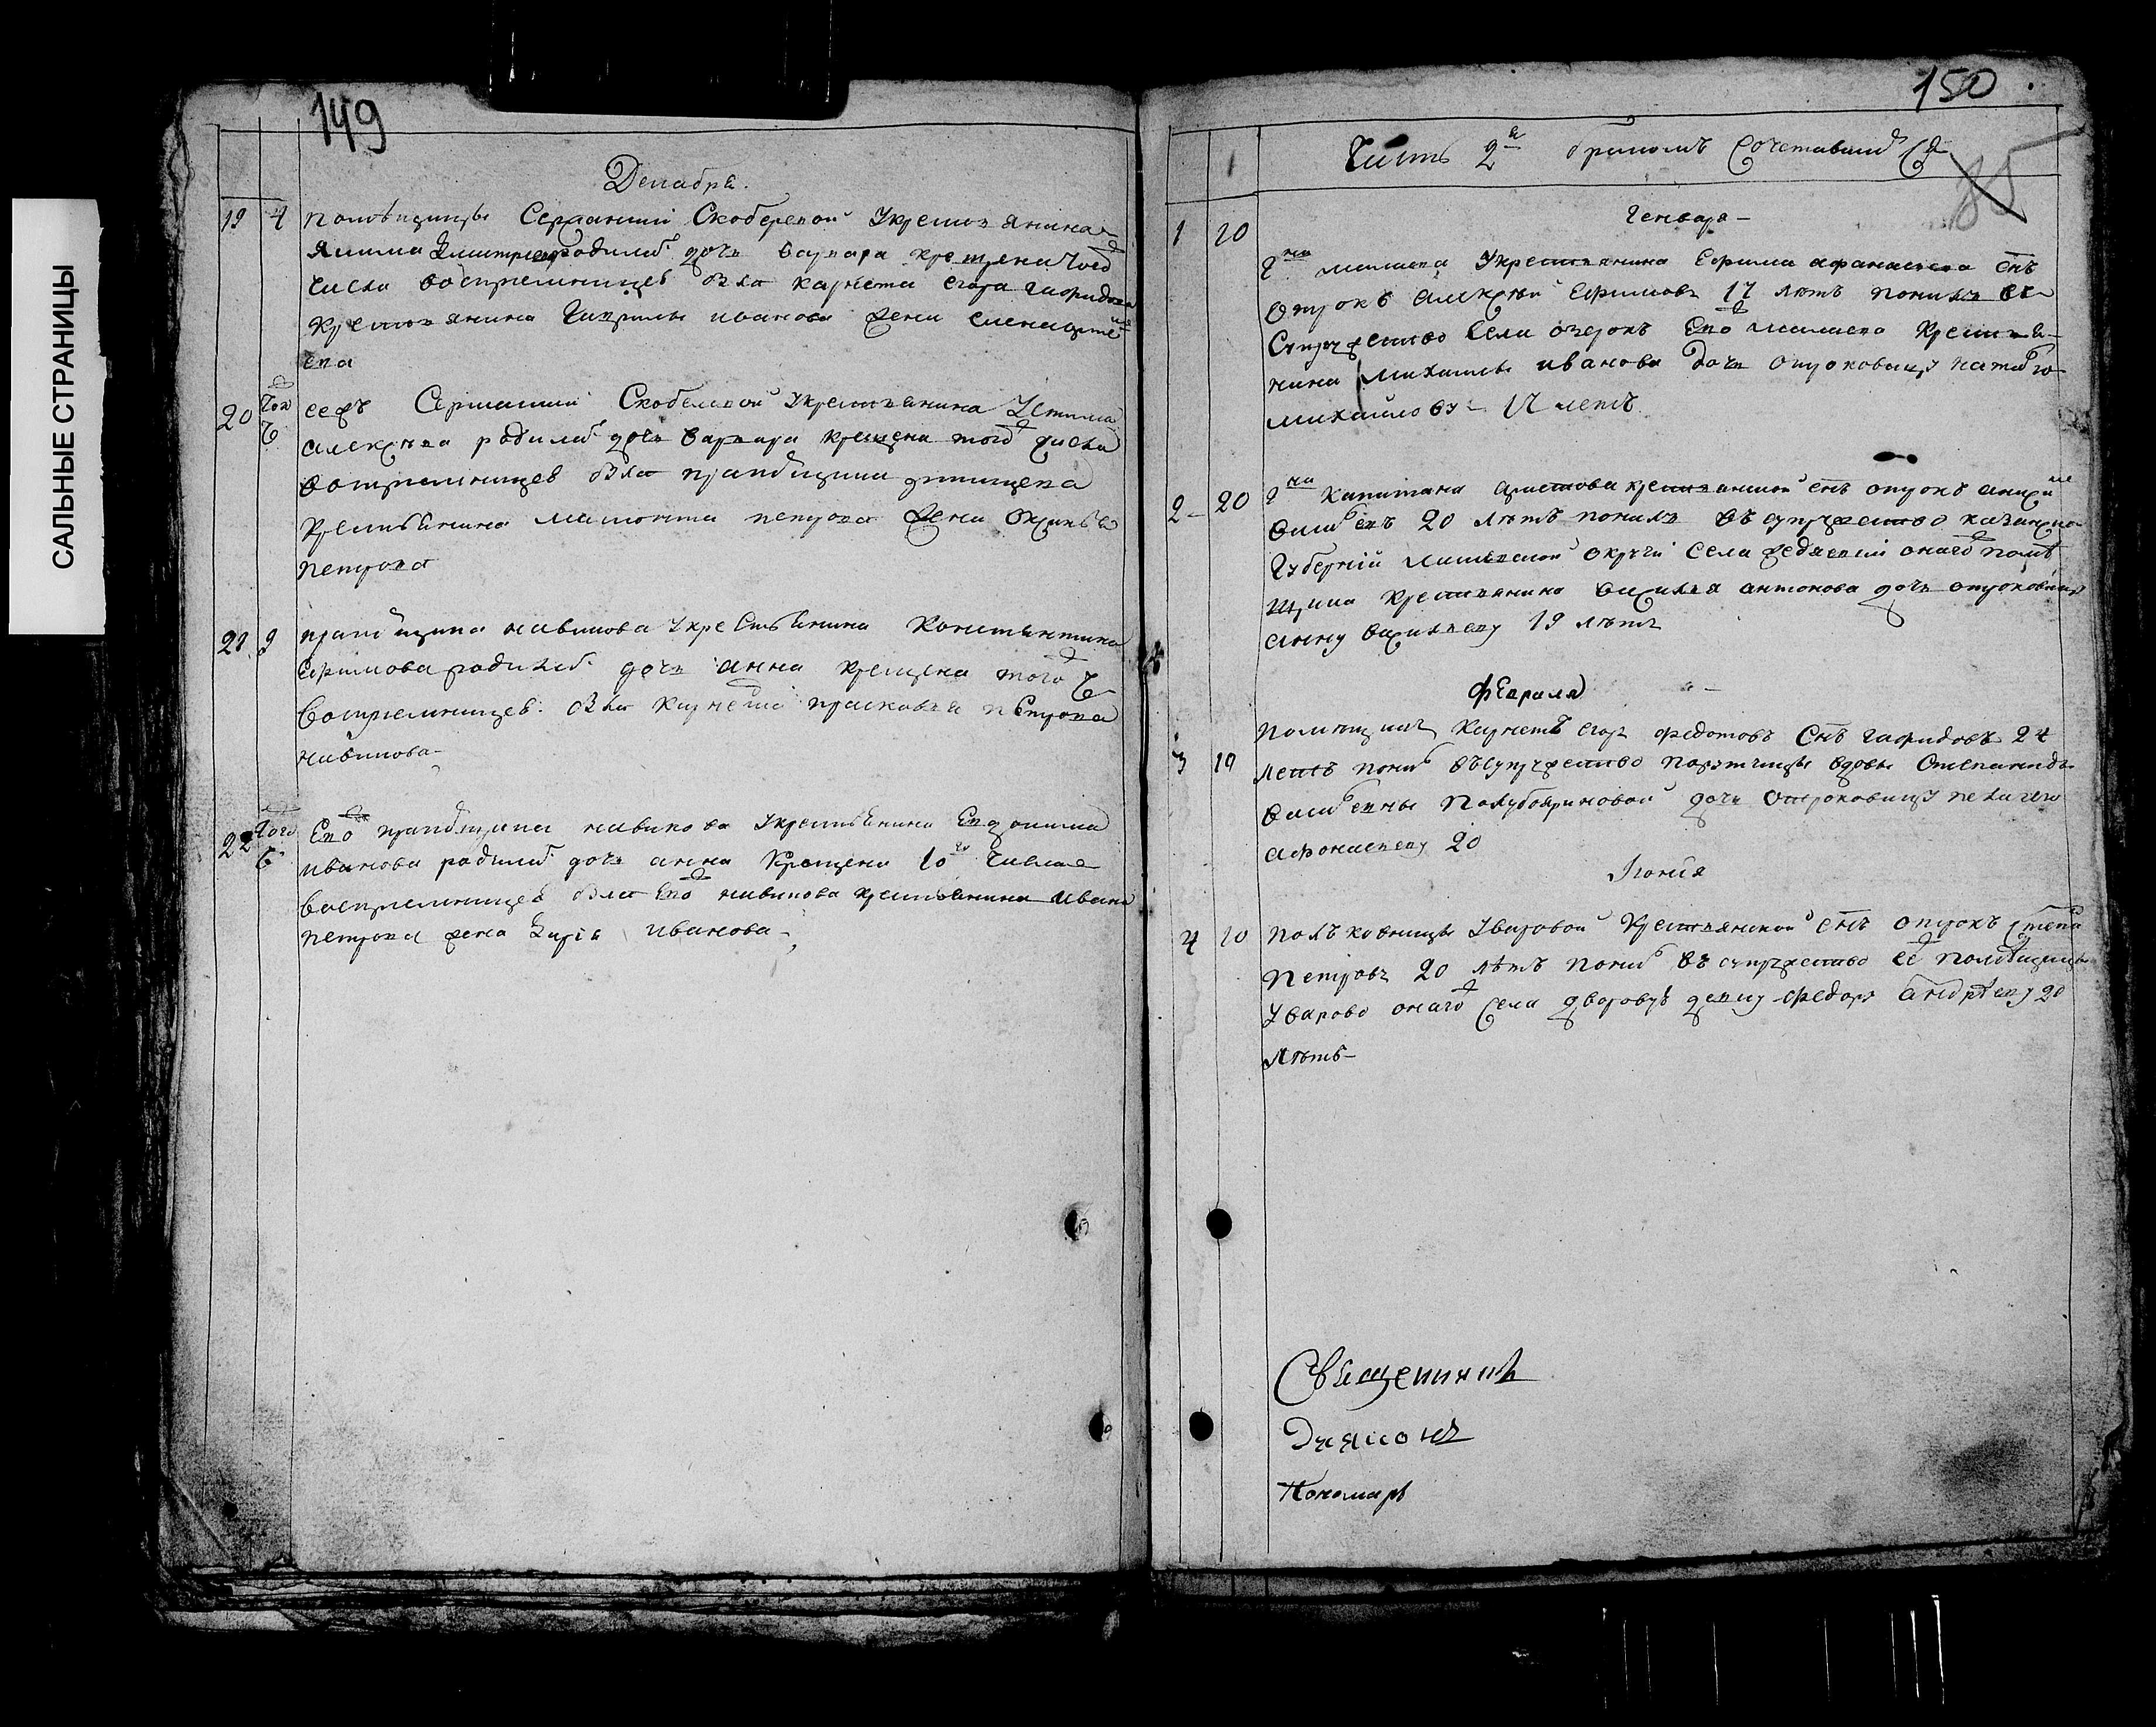 САЛЬНЫЕ СТРАНИЦЫ
149
Декабря.
19 4 помѣщицы Сержанши Скобелевой Укрестьянина
Якима Дмитриева родилась дочь Варвара крещена того
числа воспремницею была карнета егора гафидова
крестьянина Гаврилы иванова жена елена
ева
20 того ч сеяжъ Сержанши Скобелевой укрестьянина Устина
алексѣева родилась дочь варвара крещена того числа
вотприемницею была прапорщика
крестьянина мамонта петрова жена
петрова
21 9 прапорщика новикова Укрестьянина Констянтина
Ефимова родилась дочь анна крещена того ч
Воспремницею была карнета прасковья петрова
новикова
22 того ч Ево прапорщика новикова Укрестьянина Евдокима
иванова родилась дочь анна Крещена 10го числа
воспремницею была Ево новикова крестьянина ивана
петрова жена иванова
150
85
Часть 2я бракомъ сочетавшихся
Генваря
1 20
Гна мамаева Укрестьянина Ефима афанасьева снъ
отрокъ алексѣй Ефимовъ 17 лѣтъ понялъ въ
Супружество Села озерокъ Ево мамаева Крестья-
нина михаилы иванова дочь отроковицу наталью
михайлову 17 летъ
2 20 Гна Капитана аристова крестьянской снъ отрокъ
васильевъ 20 лѣтъ понялъ въ супружество казанской
Губерніи округи села онаго помѣ
щика крестьянина василья антонова дочь отроковицу
анну васильеву 19 лѣтъ
февраля
3 19 Помѣщикъ Карнетъ егоръ федотовъ Снъ гафидовъ 24
летъ понялъ въсупружество порутчицы вдовы Степаниды
васильевны Полубояриновой дочь отроковицу пелагею
афонасьеву 20
Июня
4 10 Полковницы Уваровой Крестьянской снъ отрокъ степа
Петровъ 20 лѣтъ понялъ въ супружество ее помѣщицы
Уварово онаго села дворовую девку федору андрѣеву 20
лѣтъ
Священникъ
Дияконъ
Пономарь